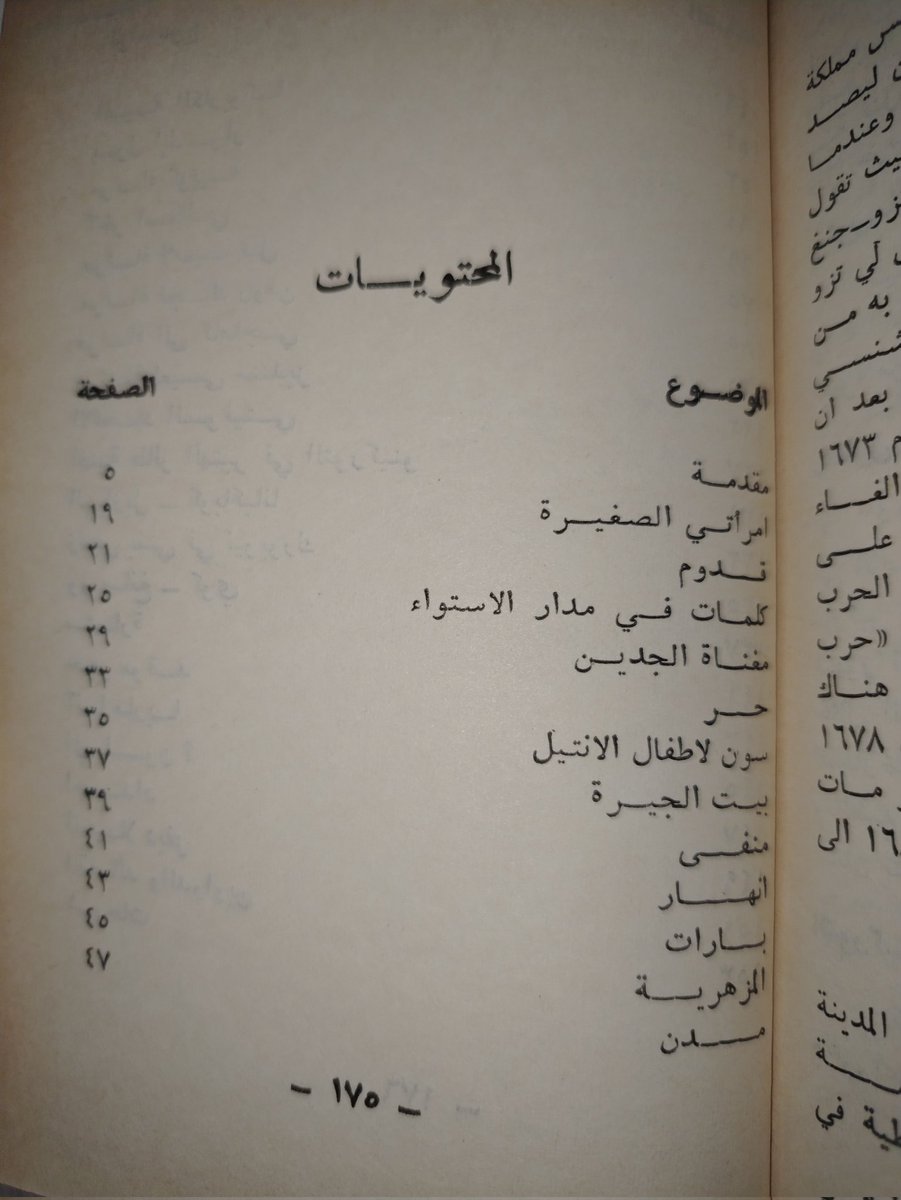 المحتويات
الموضوع الصفحة
مقدمة ٥
امرأتي الصغيرة ١٩
قدوم ٢١
كلمات في مدار الاستواء ٢٥
مغناة الجدين ٢٩
حر ٣٣
سون لاطفال الانتيل ٣٥
بيت الجيرة ٣٧
منفى ٣٩
انهار ٤١
بارات ٤٣
المزهرية ٤٥
مدن ٤٧
– ١٧٥ –
مملكة
ليصد
وعندما
تقول
لي تزو
به من
بعد ان
١٦٧٣
الغاء
على
الحرب
«حرب
هناك
١٦٧٨
مات
الى
المدينة
في